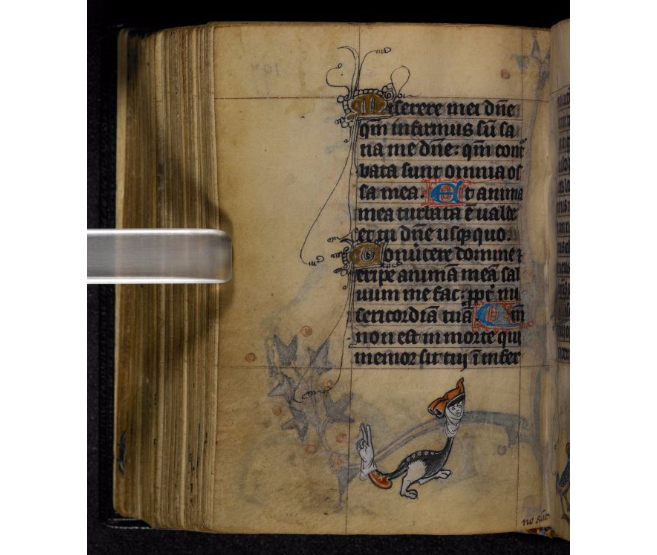 Miserere mei dñe
qm̃ infirmus sũ sa
na me dñe: qm̃ cont
bata sunt omnia os
sa mea. Et anima
mea turbata ẽ ualde
et tu dñe usqꝫ quo.
Conuertere domine ⁊
eripe animã meã sal
uum me fac: ꝓpt̃ mi
sericordiã tuã Qm̃
non est in morte qui
memor sit tuj ĩ infer